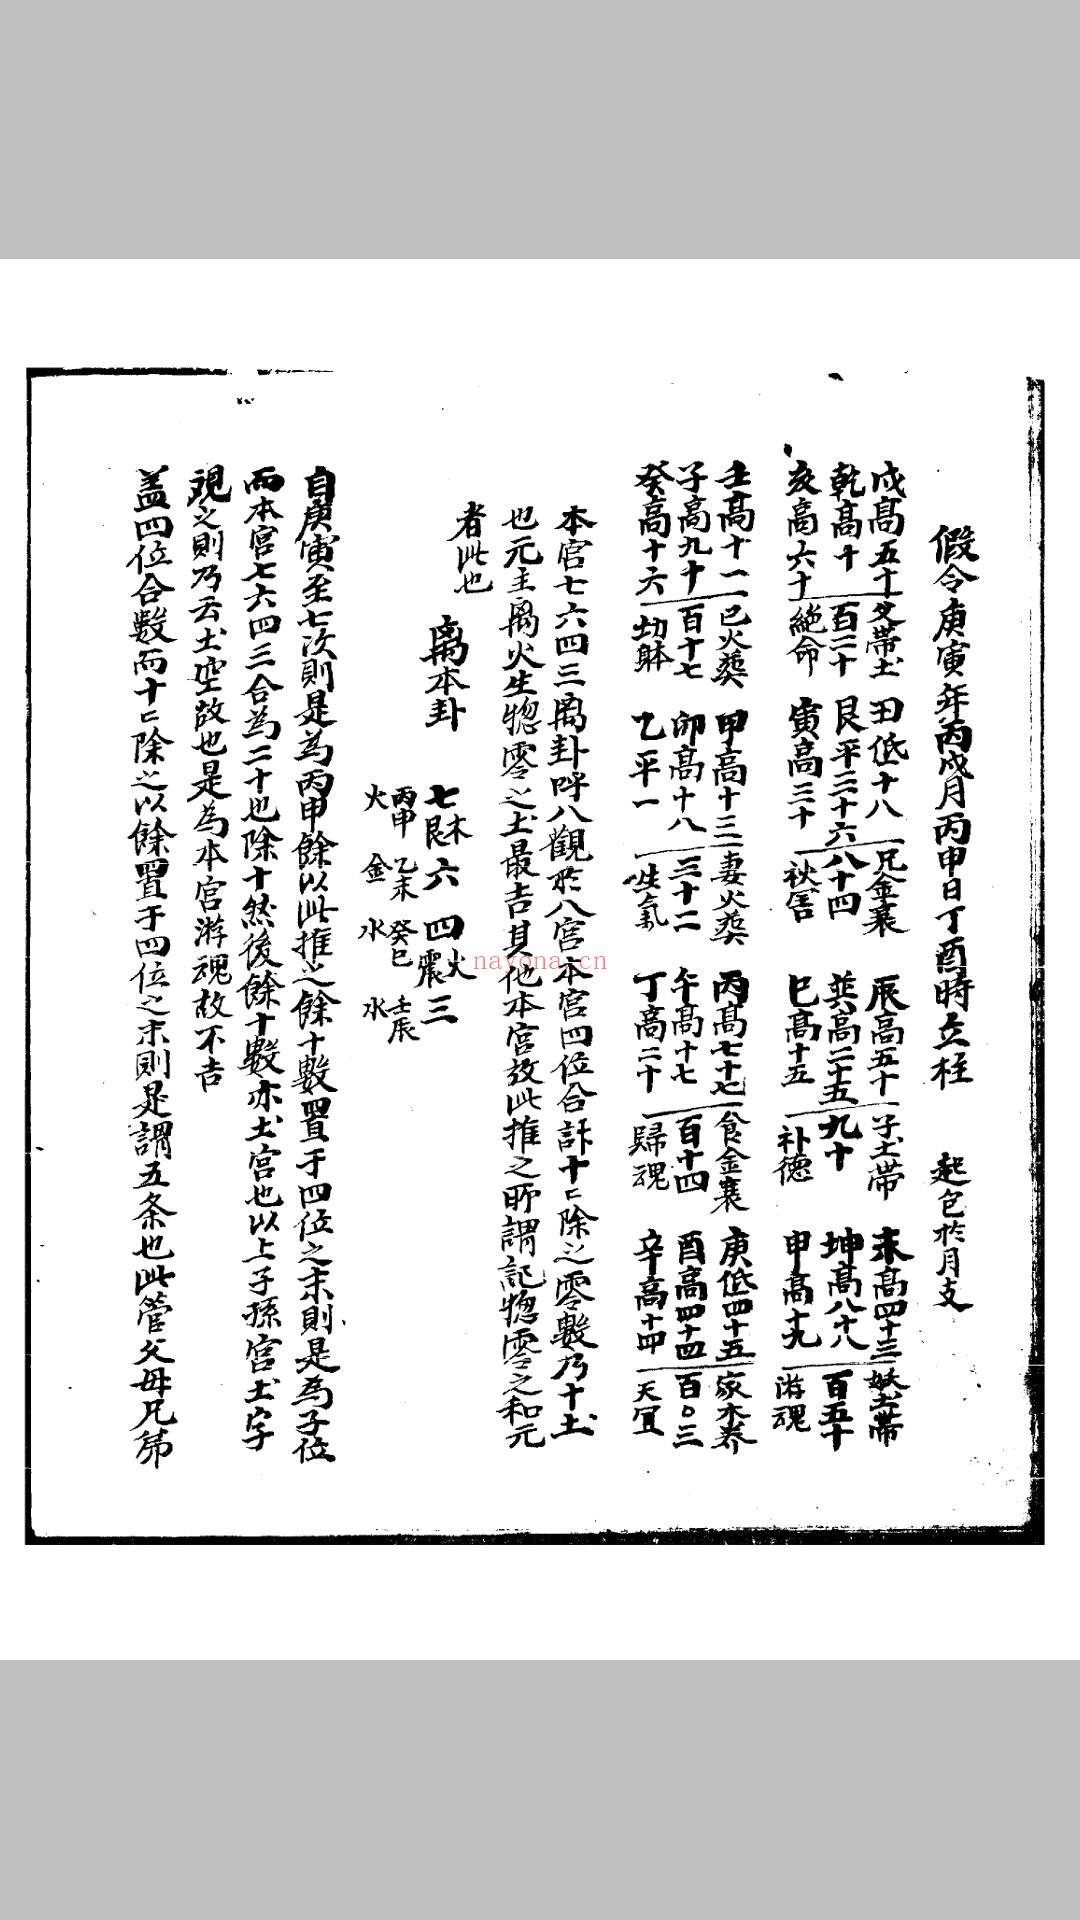 假令庚寅年丙戌月丙申日丁酉時立柱 起包於月支
戌高五十 文帶土 丑低十八 兄金衰 辰高五十 子土帶 未高四十三 妖土帶
乾高十 百二十 艮平三十六 八十四 巽高二十五 九十 坤高八十八 百五十
亥高六十 絕命 寅高三十 秋害 巳高十五 补德 申高十九 游魂
壬高十一 巳火葵 甲高十三 妻火葵 丙高七十七 食金衰 庚低四十五 家木养
子高九十 百十七 卯高十八 三十二 午高十七 百十四 酉高四十四 百〇三
癸高十六 刧躰 乙平一 生氣 丁高二十 歸魂 辛高十四 天冝
本宮七六四三离卦呼八觀於八宮本宮四位合計十二除之零數乃十土
也元主离火生惚零之土最吉其他本宮放此推之所謂記惚零之和元
者此也
离本卦 七木艮六 四火震三
丙申 乙未 癸巳 壬辰
火 金 水 水
自庚寅至七次則是為丙申餘以此推之餘十數置于四位之末則是為子位
而本宮七六四三合為二十也除十然後餘十數亦土宮也以上子孫宮土字
視之則乃云土空故也是為本宮游魂故不吉
盖四位合數而十二除之以餘置于四位之末則是謂五条也此管父母兄弟
nayona.cn